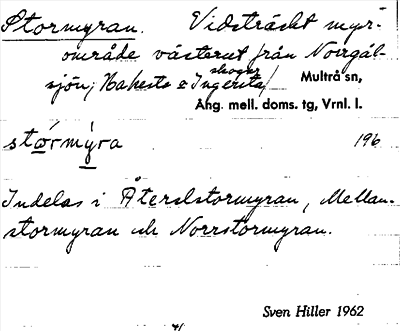 Stormyran. Vidsträckt myr-
område västerut från Norrgål-
sjön, Hahesta & Ingersta skogar/ Multrå sn,
Ång. mell. doms. tg, Vrnl. l.
stórmỳra 196
Indelas i Återstormyran, Mellan-
stormyran och Norrstormyran.
Sven Hiller 1962